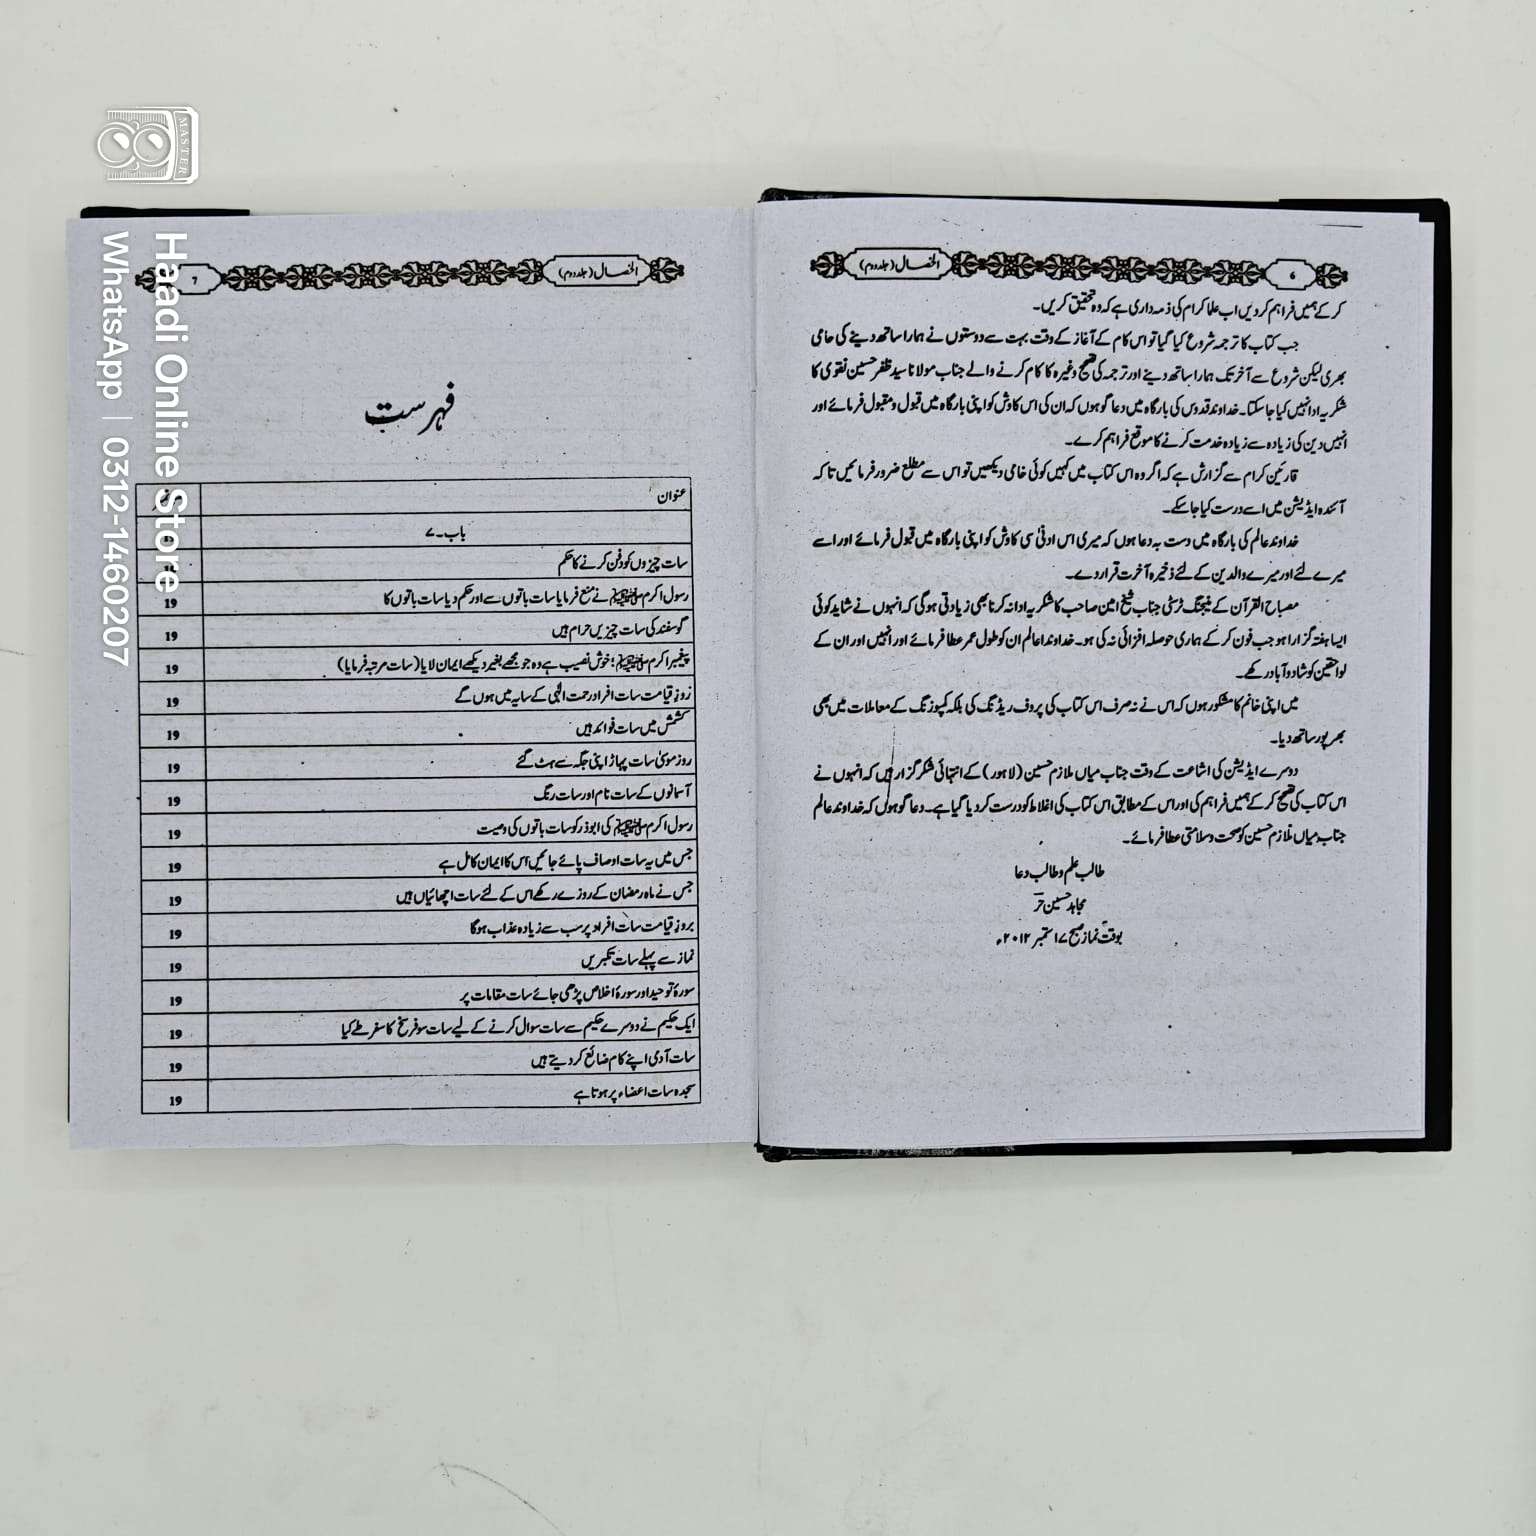 6
الخصال (جلد دوم)
کر کے ہمیں فراہم کر دیں اب علما کرام کی ذمہ داری ہے کہ وہ تحقیق کریں۔
جب کتاب کا ترجمہ شروع کیا گیا تو اس کام کے آغاز کے وقت بہت سے دوستوں نے ہمارا ساتھ دینے کی حامی
بھری لیکن شروع سے آخر تک ہمارا ساتھ دینے اور ترجمہ کی تصحیح وغیرہ کا کام کرنے والے جناب مولانا سید ظفر حسین نقوی کا
شکریہ ادا نہیں کیا جا سکتا۔ خداوند قدوس کی بارگاہ میں دعا گو ہوں کہ ان کی اس کاوش کو اپنی بارگاہ میں قبول و مقبول فرمائے اور
انہیں دین کی زیادہ سے زیادہ خدمت کرنے کا موقع فراہم کرے۔
قارئین کرام سے گزارش ہے کہ اگر وہ اس کتاب میں کہیں کوئی خامی دیکھیں تو اس سے مطلع ضرور فرمائیں تا کہ
آئندہ ایڈیشن میں اسے درست کیا جا سکے۔
خداوند عالم کی بارگاہ میں دست بہ دعا ہوں کہ میری اس ادنیٰ سی کاوش کو اپنی بارگاہ میں قبول فرمائے اور اسے
میرے لئے اور میرے والدین کے لئے ذخیرہ آخرت قرار دے۔
مصباح القرآن کے منیجنگ ٹرسٹی جناب شیخ امین صاحب کا شکریہ ادا نہ کرنا بھی زیادتی ہوگی کہ انہوں نے شاید کوئی
ایسا ہفتہ گزارا ہو جب فون کر کے ہماری حوصلہ افزائی نہ کی ہو۔ خداوندا عالم ان کو طول عمر عطا فرمائے اور انہیں اور ان کے
لواحقین کو شاد و آباد رکھے۔
میں اپنی خانم کا مشکور ہوں کہ اس نے نہ صرف اس کتاب کی پروف ریڈنگ کی بلکہ کمپوزنگ کے معاملات میں بھی
بھرپور ساتھ دیا۔
دوسرے ایڈیشن کی اشاعت کے وقت جناب میاں ملازم حسین (لاہور) کے انتہائی شکر گزار ہیں کہ انہوں نے
اس کتاب کی تصحیح کر کے ہمیں فراہم کی اور اس کے مطابق اس کتاب کی اغلاط کو درست کر دیا گیا ہے۔ دعا گو ہوں کہ خداوند عالم
جناب میاں ملازم حسین کو صحت و سلامتی عطا فرمائے۔
طالب علم و طالب دعا
مجاہد حسین حر
بوقت نماز صبح ۱۷ ستمبر ۲۰۱۲ء
الخصال (جلد دوم)
7
فہرست
عنوان
باب۔۷
سات چیزوں کو دفن کرنے کا حکم
رسول اکرم ﷺ نے منع فرمایا سات باتوں سے اور حکم دیا سات باتوں کا 19
گوسفند کی سات چیزیں حرام ہیں 19
پیغمبر اکرم ﷺ: خوش نصیب ہے وہ جو مجھے بغیر دیکھے ایمان لایا (سات مرتبہ فرمایا) 19
روز قیامت سات افراد رحمت الٰہی کے سایہ میں ہوں گے 19
کشمش میں سات فوائد ہیں 19
روز موسیٰ سات پہاڑ اپنی جگہ سے ہٹ گئے 19
آسمانوں کے سات نام اور سات رنگ 19
رسول اکرم ﷺ کی ابوذر کو سات باتوں کی وصیت 19
جس میں یہ سات اوصاف پائے جائیں اس کا ایمان کامل ہے 19
جس نے ماہ رمضان کے روزے رکھے اس کے لئے سات اچھائیاں ہیں 19
بروز قیامت سات افراد پر سب سے زیادہ عذاب ہوگا 19
نماز سے پہلے سات تکبیریں 19
سورۂ توحید اور سورۂ اخلاص پڑھی جائے سات مقامات پر 19
ایک حکیم نے دوسرے حکیم سے سات سوال کرنے کے لیے سات سو فرسخ کا سفر طے کیا 19
سات آدمی اپنے کام ضائع کر دیتے ہیں 19
سجدہ سات اعضاء پر ہوتا ہے 19
MASTER
Haadi Online Store
WhatsApp | 0312-1460207